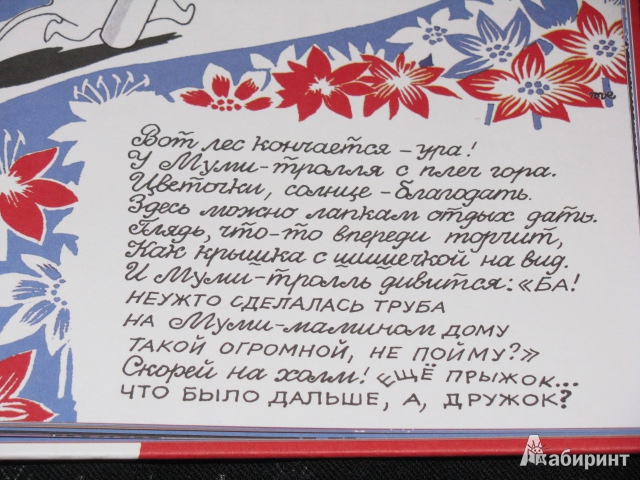 Вот лес кончается – ура!
У Муми-тролля с плеч гора.
Цветочки, солнце – благодать.
Здесь можно лапкам отдых дать.
Глядь, что-то впереди торчит,
Как крышка с шишечкой на вид.
И Муми-тролль дивится: «БА!
НЕУЖТО СДЕЛАЛАСЬ ТРУБА
НА Муми-мамином ДОМУ
ТАКОЙ ОГРОМНОЙ, НЕ ПОЙМУ?»
Скорей на холм! ЕЩЁ ПРЫЖОК...
ЧТО БЫЛО ДАЛЬШЕ, А, ДРУЖОК?
Лабиринт